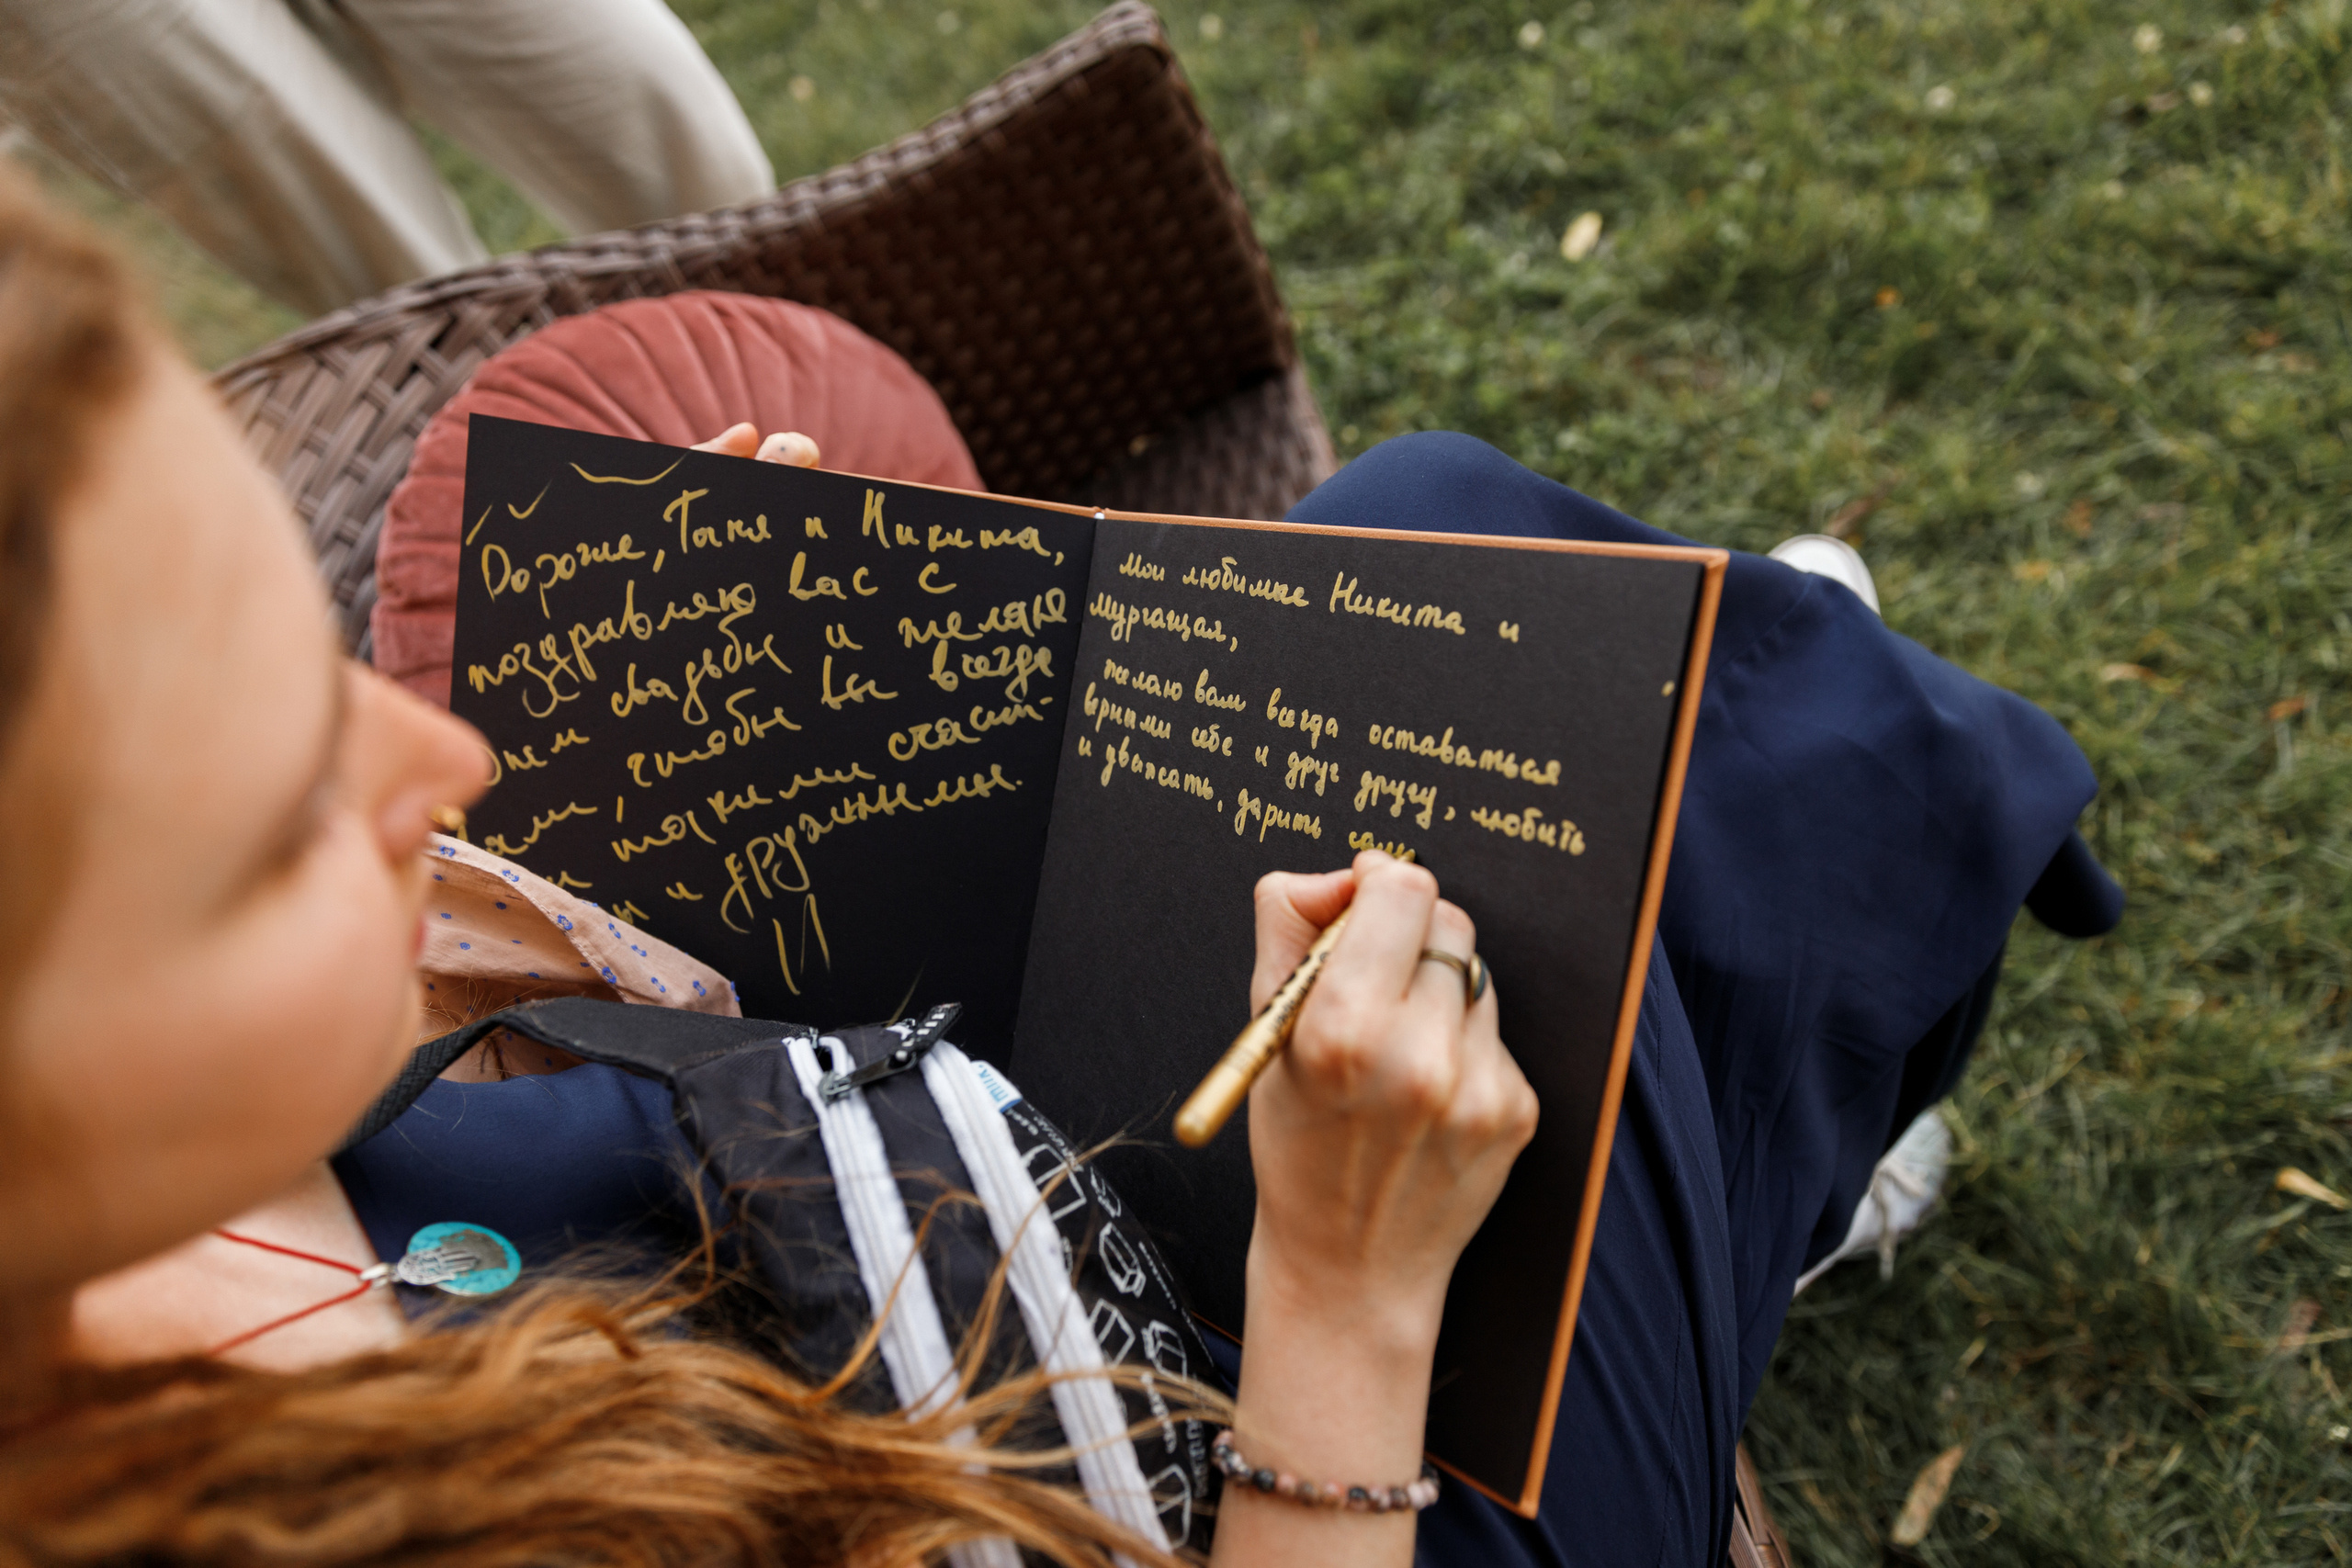 Дорогие, Таня и Никита,
поздравляю вас с
Днём свадьбы и желаю
вам, чтобы вы всегда
такими счаст-
ы и дружными.
Мои любимые Никита и
Мургащая,
желаю вам всегда оставаться
верными себе и друг другу, любить
и уважать, дарить
milk